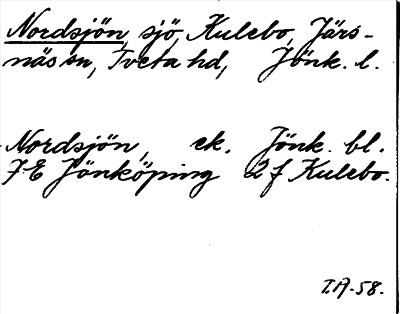 Nordsjön, sjö, Kulebo, Järs-
näs sn, Tveta hd, Jönk. l.
Nordsjön, ek. Jönk. bl.
7E Jönköping 2f Kulebo.
T.A-58.